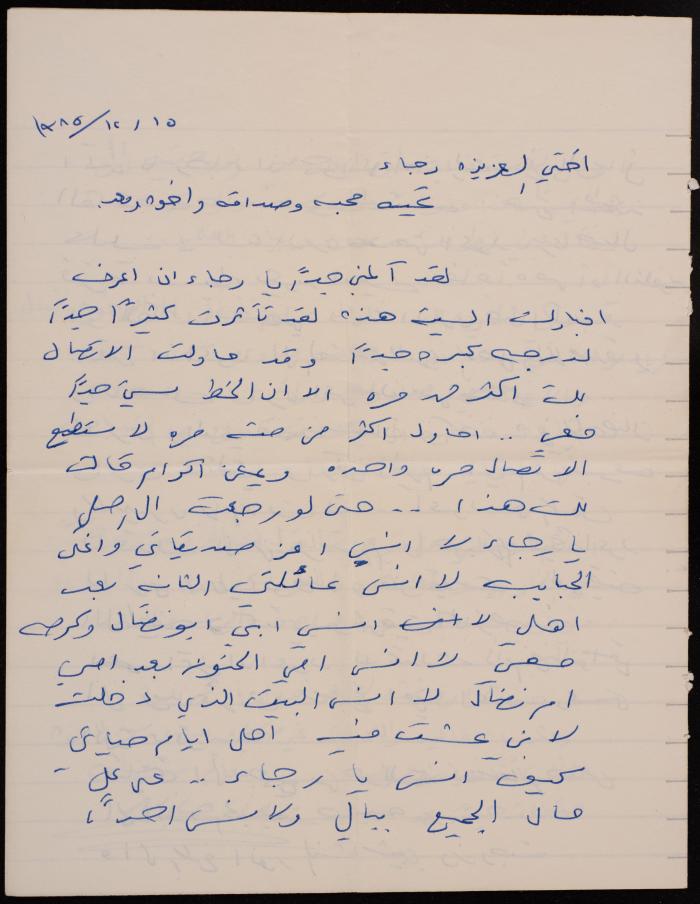 ١٩٨٥/١٢/١٥
اختي العزيزه رجاء
تحيه محبه وصداقه واخوه وبعد
لقد آلمني جيداً يا رجاء ان اعرف
اخبارك السيئة هذه لقد تأثرت كثيراً جيداً
لدرجه كبيره جيداً وقد حاولت الاتصال
بك اكثر من مره الا ان الخط سيئ جيداً
.. احاول اكثر من مره لا استطيع
الاتصال مره واحده اكرام قالت
لك هذا ... حتى لو رجعت
يا رجاء لا انسى اعز صديقاتي واغلى
الحبايب لا انسى عائلتي الثانيه بعد
اهلي لا انسى ابي ابو نضال وكرمه
معي لا انسى امي الحنونه بعد امي
ام نضال لا انسى البيت الذي دخلت
لاني عشت فيه احلى ايام حياتي
كيف انسى يا رجاء .. على كل
حال الجميع ببالي ولا انسى احداً